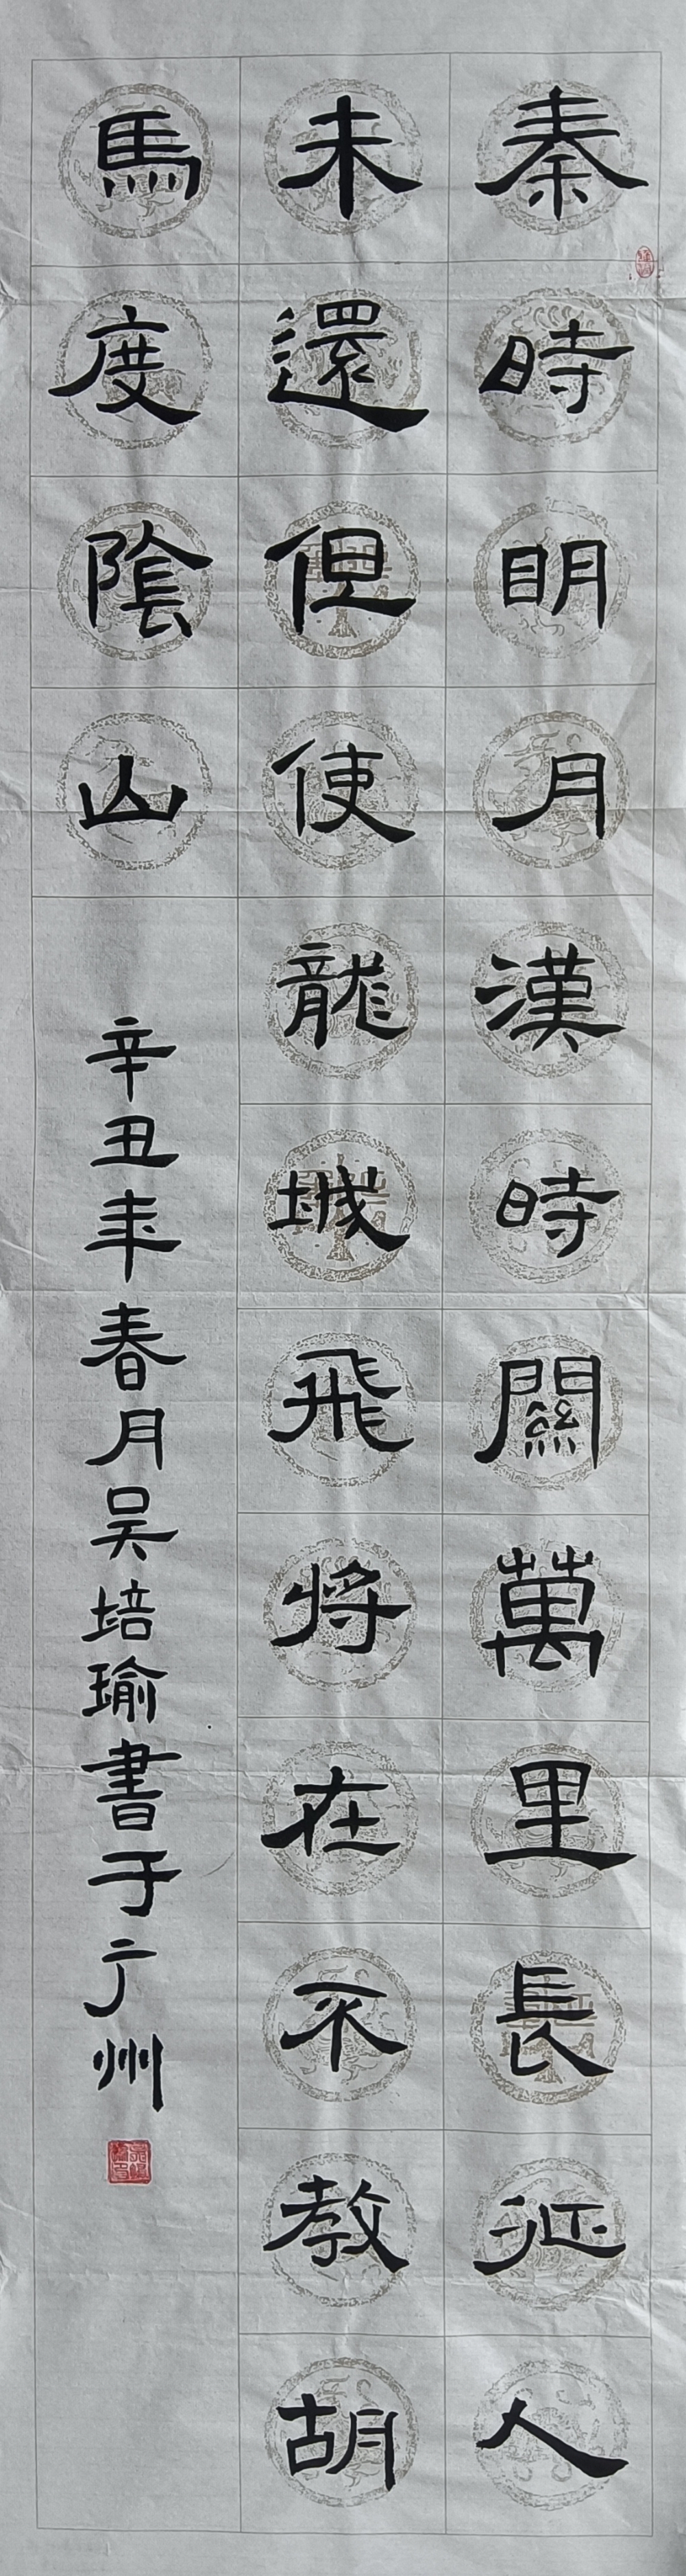 秦時明月漢時關萬里長征人
未還但使龍城飛将在不教胡
馬度陰山
辛丑年春月吴培瑜書于广州